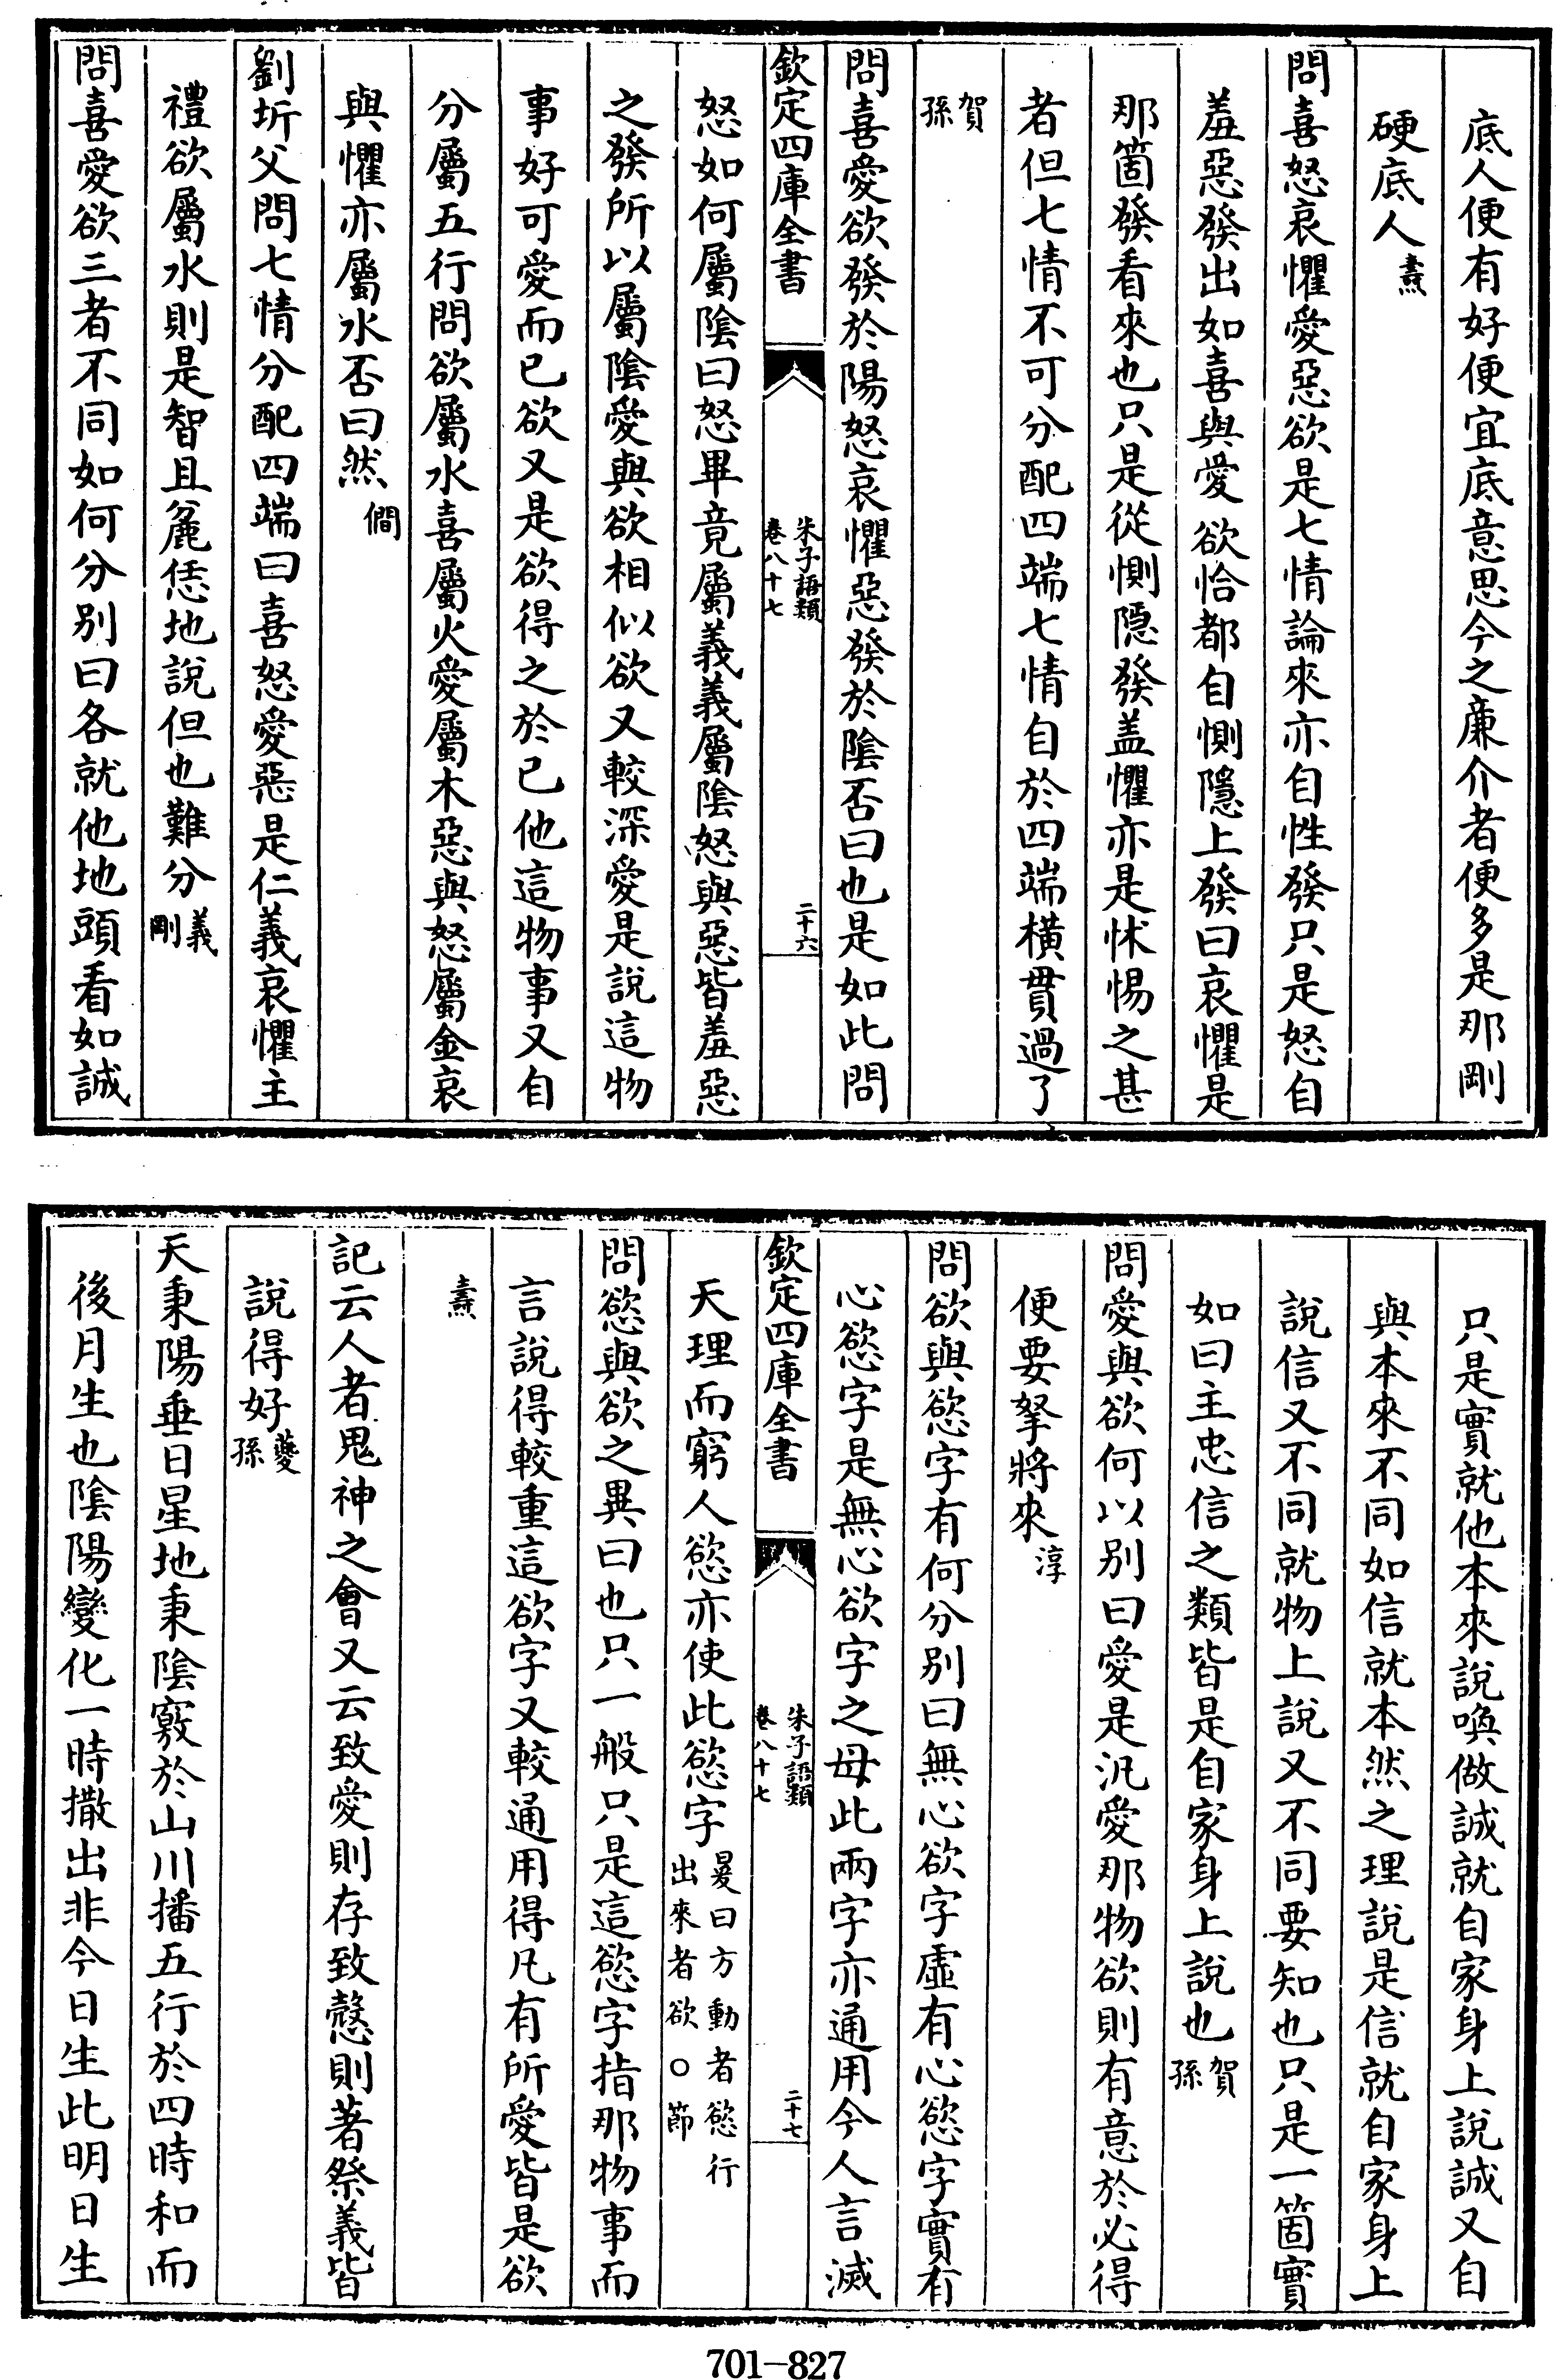 底人便有好便宜底意思今之廉介者便多是那剛
硬底人燾
問喜怒哀懼愛惡欲是七情論來亦自性發只是怒自
羞惡發出如喜與愛欲恰都自惻隱上發曰哀懼是
那箇發看來也只是從惻隱發盖懼亦是怵惕之甚
者但七情不可分配四端七情自於四端橫貫過了
賀孫
問喜愛欲發於陽怒哀懼惡發於陰否曰也是如此問
欽定四庫全書 朱子語類 卷八十七 二十六
怒如何屬陰曰怒畢竟屬義義屬陰怒與惡皆羞惡
之發所以屬陰愛與欲相似欲又較深愛是說這物
事好可愛而已欲又是欲得之於已他這物事又自
分屬五行問欲屬水喜屬火愛屬木惡與怒屬金哀
與懼亦屬水否曰然僩
劉圻父問七情分配四端曰喜怒愛惡是仁義哀懼主
禮欲屬水則是智且麄恁地說但也難分義剛
問喜愛欲三者不同如何分别曰各就他地頭看如誠
只是實就他本來說喚做誠就自家身上說誠又自
與本來不同如信就本然之理說是信就自家身上
說信又不同就物上說又不同要知也只是一箇實
如曰主忠信之類皆是自家身上說也賀孫
問愛與欲何以别曰愛是汎愛那物欲則有意於必得
便要拏將來淳
問欲與慾字有何分别曰無心欲字虛有心慾字實有
心慾字是無心欲字之母此兩字亦通用今人言滅
欽定四庫全書 朱子語類 卷八十七 二十七
天理而窮人慾亦使此慾字㬊曰方動者慾行出來者欲○節
問慾與欲之異曰也只一般只是這慾字指那物事而
言說得較重這欲字又較通用得凡有所愛皆是欲
燾
記云人者鬼神之會又云致愛則存致慤則著祭義皆
說得好夔孫
天秉陽垂日星地秉陰竅於山川播五行於四時和而
後月生也陰陽變化一時撒出非今日生此明日生
701—827